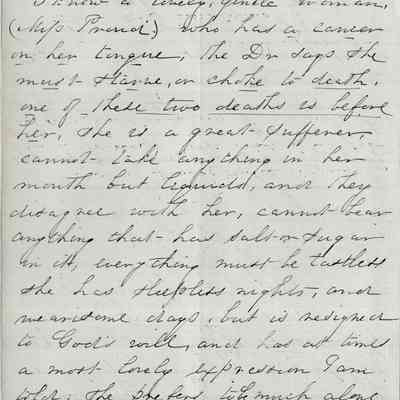 I know a lovely, gentle woman,
(Miss Proud,) who has a cancer
on her tongue, the Dr says she
must starve, or choke to death,
one of these two deaths is before
her, she is a great sufferer,
cannot take anything in her
mouth but liquids, and they
disagree with her, cannot bear
anything that has salt or sugar
in it, everything must be tasteless
she has sleepless nights, and
wearisome days, but is resigned
to God's will, and has at times
a most lovely expression I am
told; she prefers to be much alone